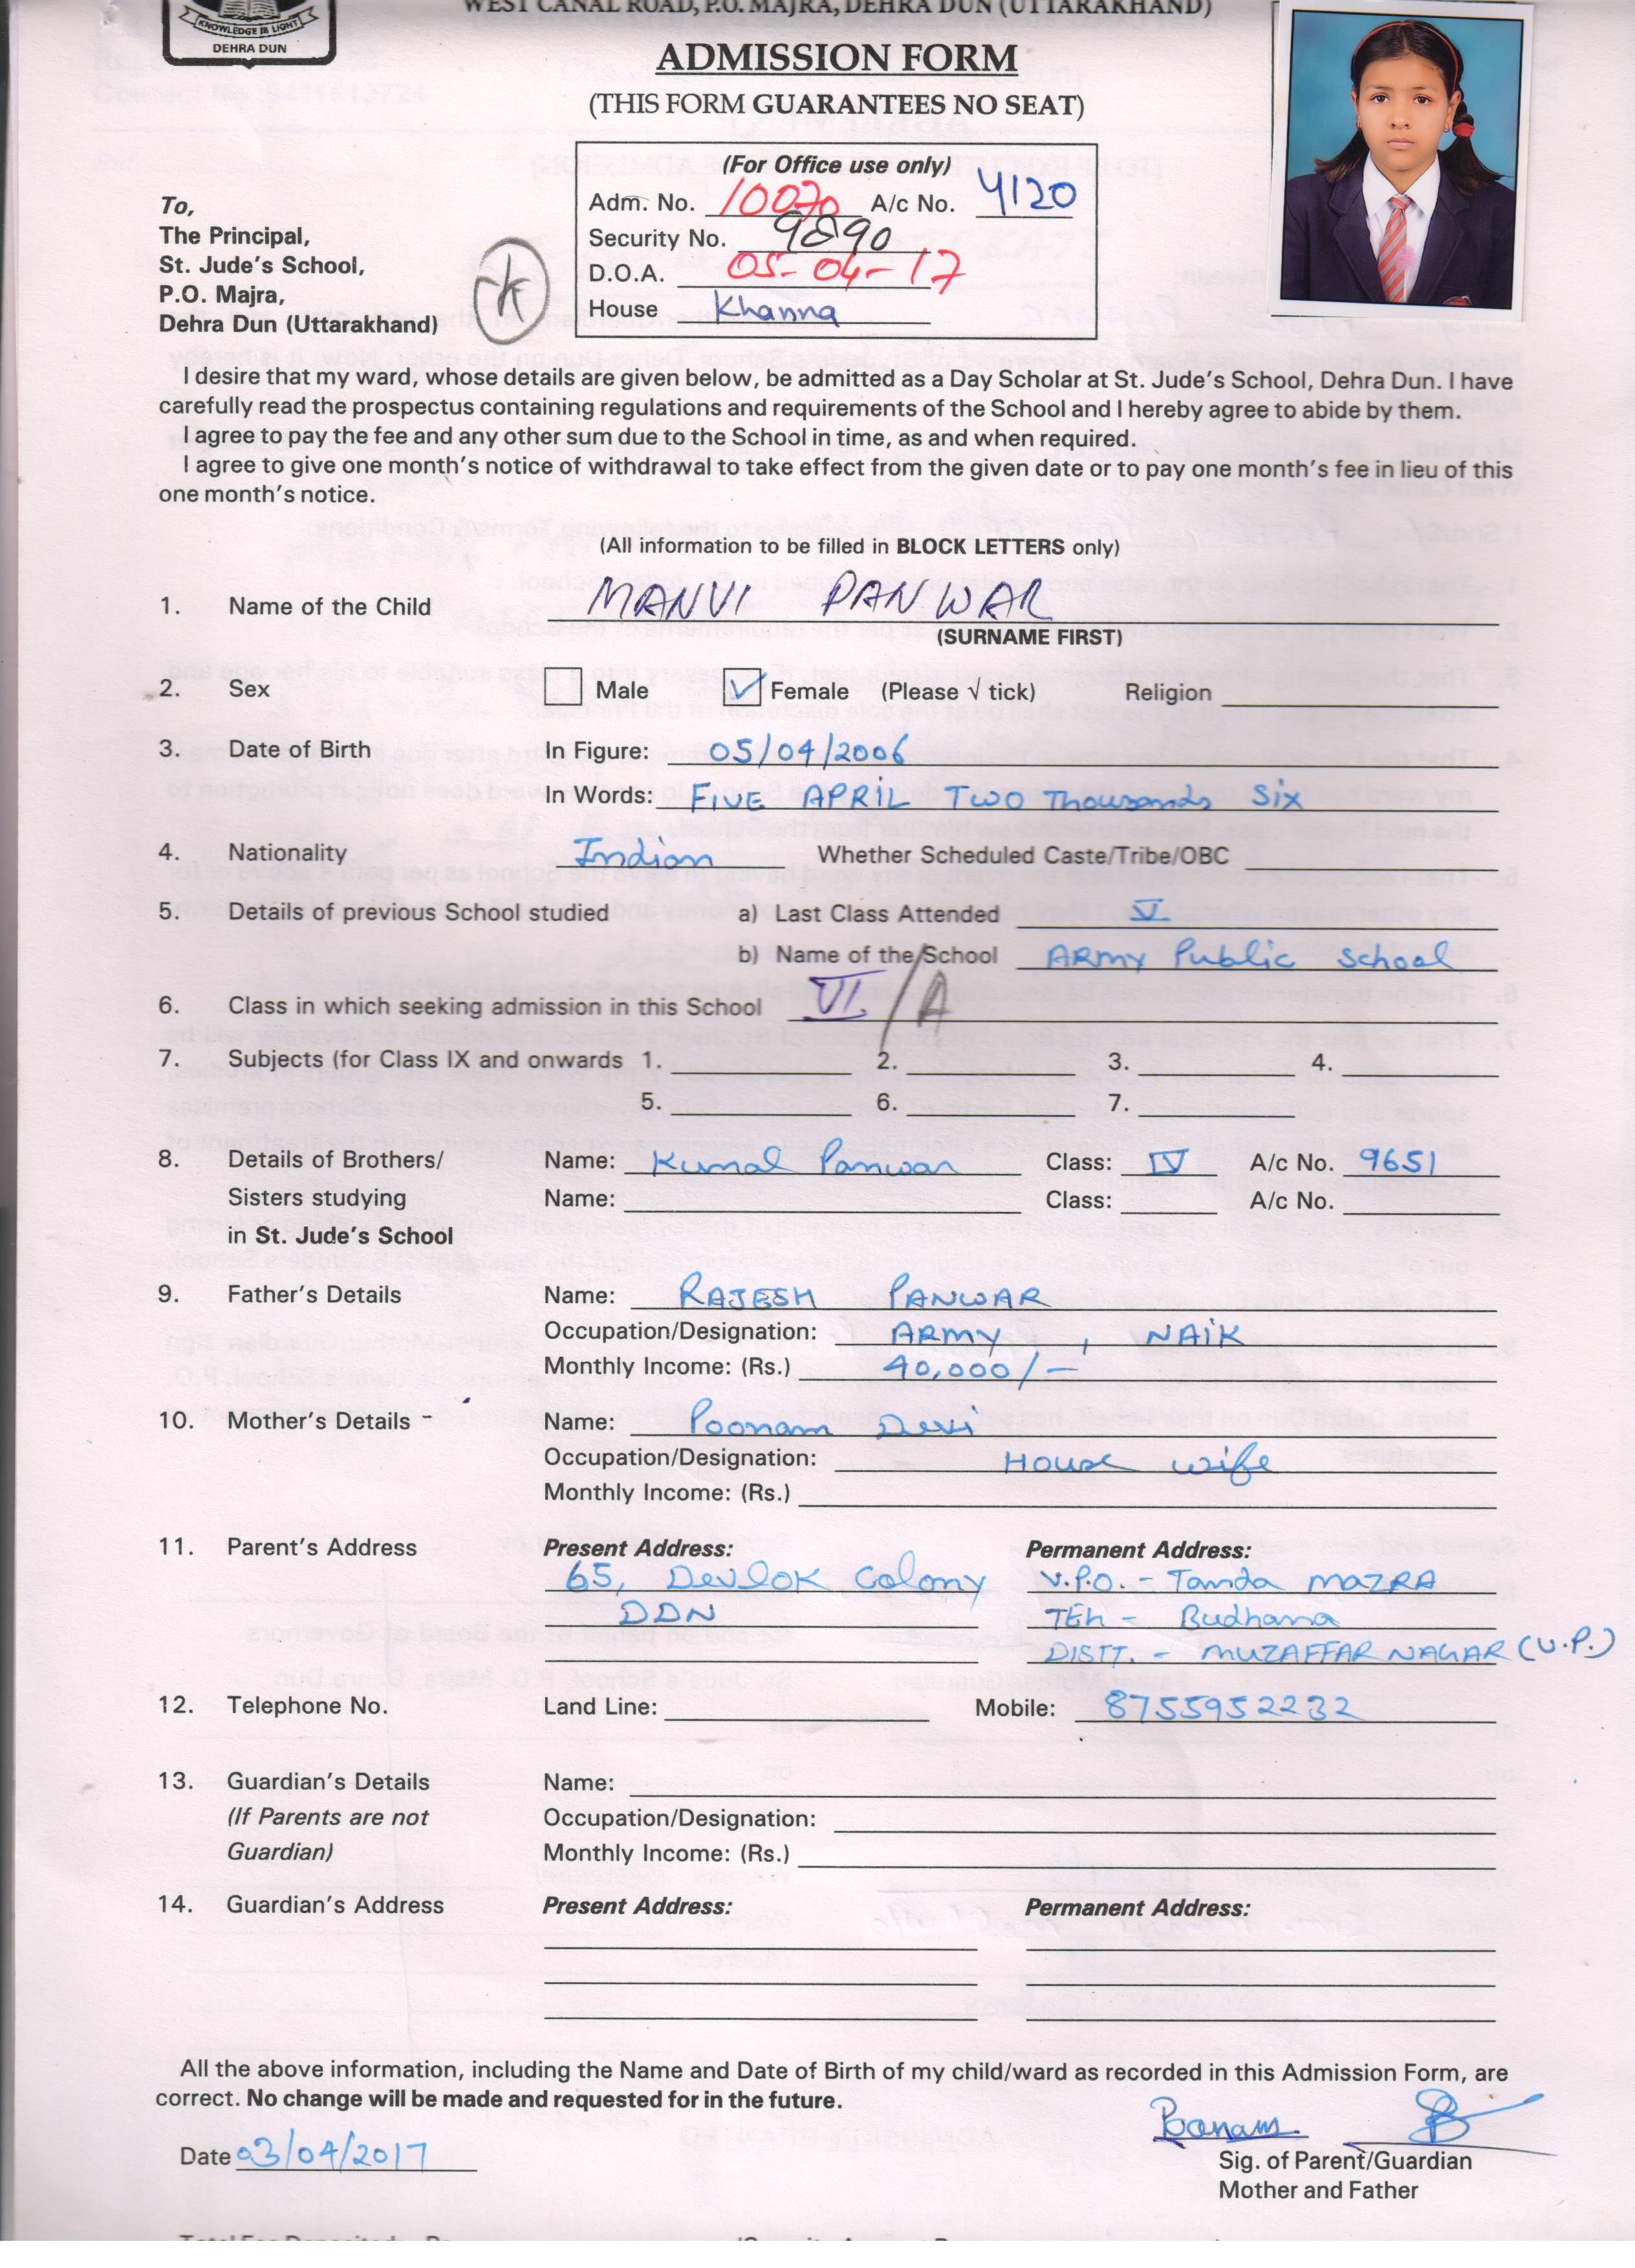 WEST CANAL ROAD, P.O. MAJRA, DEHRA DUN (UTTARAKHAND)
KNOWLEDGE IS LIGHT
DEHRA DUN
ADMISSION FORM
(THIS FORM GUARANTEES NO SEAT)
(For Office use only)
Adm. No. 10070 A/c No. 4120
Security No. 9890
D.O.A. 05-04-17
House Khanna
To,
The Principal,
St. Jude's School,
P.O. Majra,
Dehra Dun (Uttarakhand)
I desire that my ward, whose details are given below, be admitted as a Day Scholar at St. Jude's School, Dehra Dun. I have
carefully read the prospectus containing regulations and requirements of the School and I hereby agree to abide by them.
I agree to pay the fee and any other sum due to the School in time, as and when required.
I agree to give one month's notice of withdrawal to take effect from the given date or to pay one month's fee in lieu of this
one month's notice.
(All information to be filled in BLOCK LETTERS only)
1. Name of the Child MANVI PANWAR
(SURNAME FIRST)
2. Sex Male ✓ Female (Please √ tick) Religion
3. Date of Birth In Figure: 05/04/2006
In Words: FIVE APRIL TWO Thousands Six
4. Nationality Indian Whether Scheduled Caste/Tribe/OBC
5. Details of previous School studied a) Last Class Attended V
b) Name of the School ARMY Public School
6. Class in which seeking admission in this School VI / A
7. Subjects (for Class IX and onwards 1. 2. 3. 4.
5. 6. 7.
8. Details of Brothers/ Name: Kunal Panwar Class: IV A/c No. 9651
Sisters studying Name: Class: A/c No.
in St. Jude's School
9. Father's Details Name: RAJESH PANWAR
Occupation/Designation: ARMY, NAIK
Monthly Income: (Rs.) 40,000/-
10. Mother's Details - Name: Poonam Devi
Occupation/Designation: House wife
Monthly Income: (Rs.)
11. Parent's Address Present Address: Permanent Address:
65, Devlok Colony V.P.O. - Tanda MAZRA
DDN TEh - Budhana
DISTT. - MUZAFFAR NAGAR (U.P.)
12. Telephone No. Land Line: Mobile: 8755952232
13. Guardian's Details Name:
(If Parents are not Occupation/Designation:
Guardian) Monthly Income: (Rs.)
14. Guardian's Address Present Address: Permanent Address:
All the above information, including the Name and Date of Birth of my child/ward as recorded in this Admission Form, are
correct. No change will be made and requested for in the future.
Poonam
Date 03/04/2017
Sig. of Parent/Guardian
Mother and Father